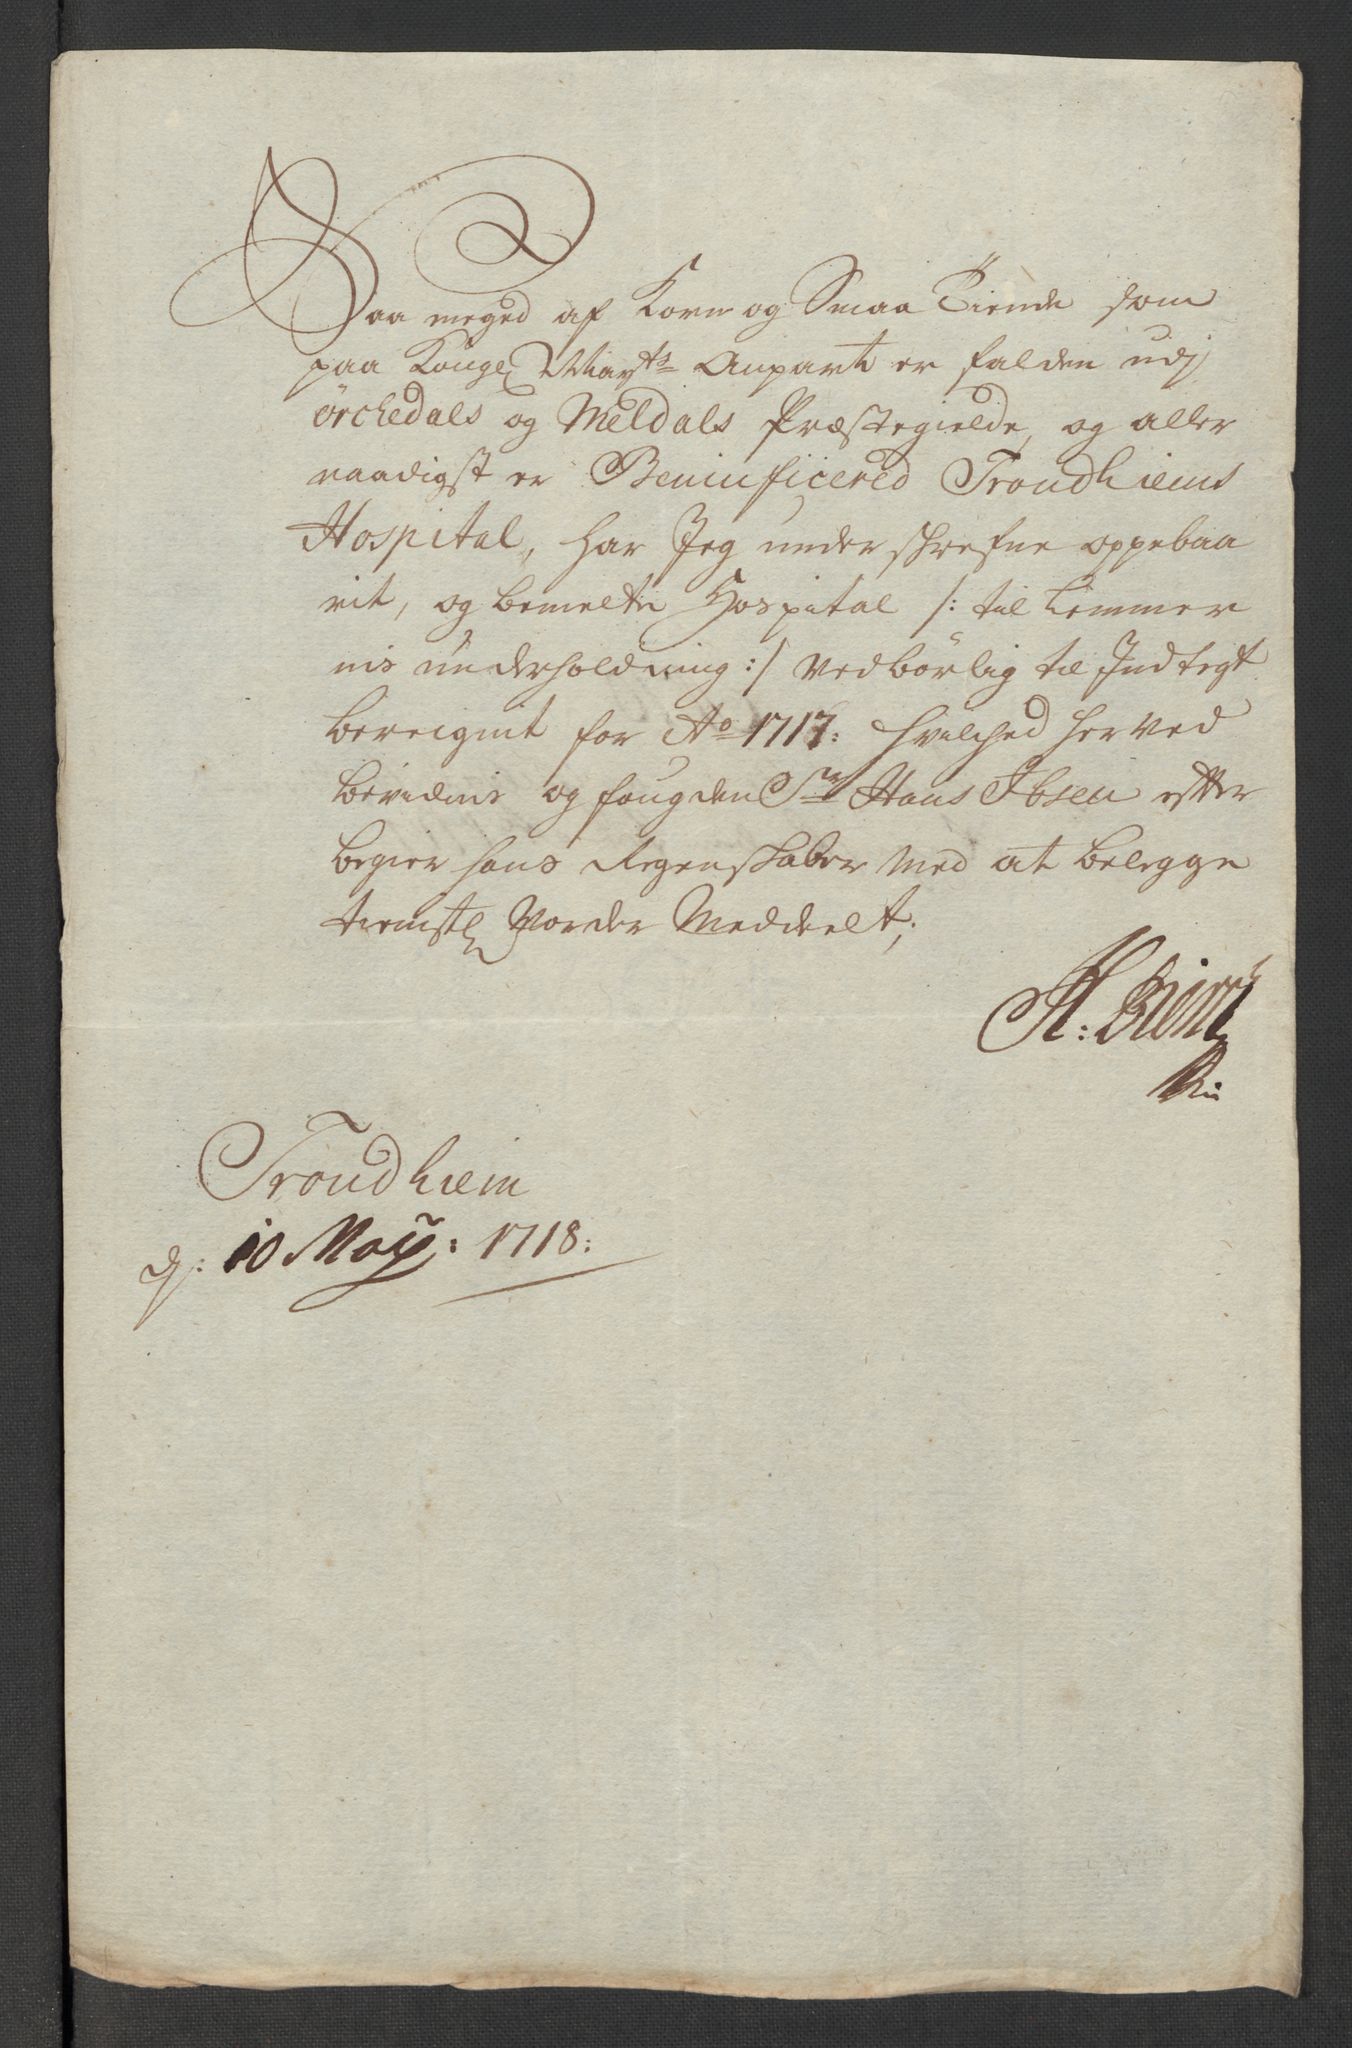 Saa meged af Korn og Smaa Tiende som
paa Kongel Mayts Anpart er falden udj
örckedals og Meldals Præstegielde, og aller
naadigst er Beneuficered Trondhiems
Hospital, har Jeg underskrefne oppebaa
rit, og bemelte Hospital /: til Lemmer
nis underholdning :/ vedbörlig til Indtegt
bereignit for Ao 1717: hvilched herved
bevidnis og fougden Sr Hans Ibsen efter
begier hans Regenskaber med at belegge
tienstl Vorder Meddeelt;
H:
Trondhiem
d: 10 May: 1718: